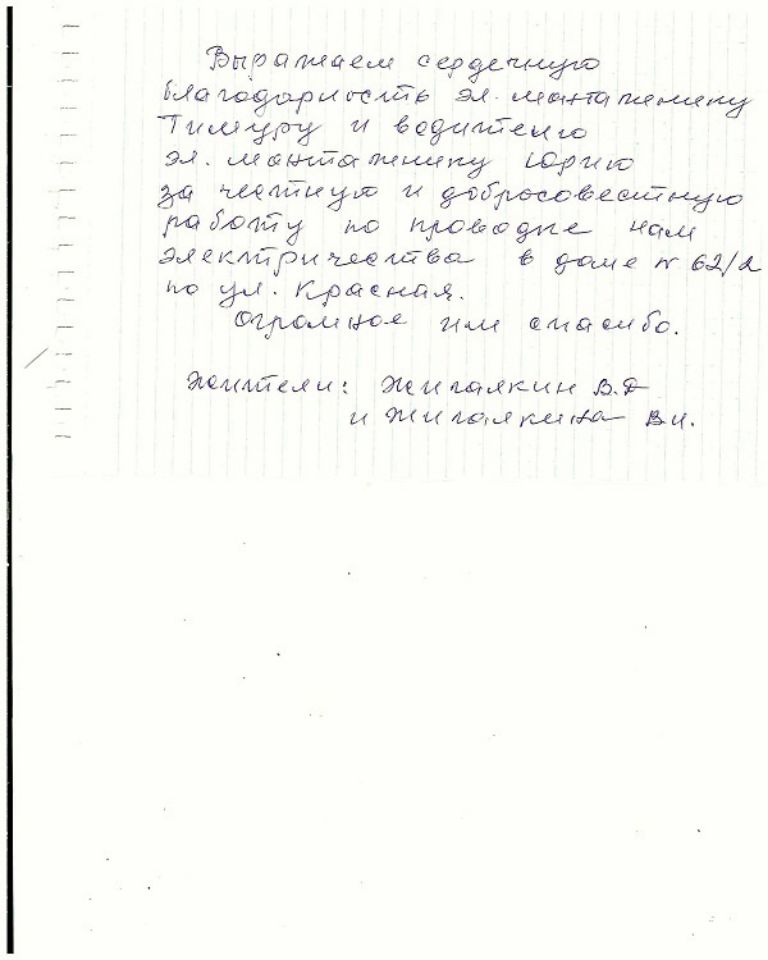 Выражаем сердечную
благодарность эл. мантаженику
Тимуру и водителю
эл. мантаженику Юрию
за честную и добросовестную
работу по проводке нам
электричества в доме № 62/2
по ул. Красная.
Огромное им спасибо.
Жители: Жигалкин В.Д
и Жигалкина В.И.